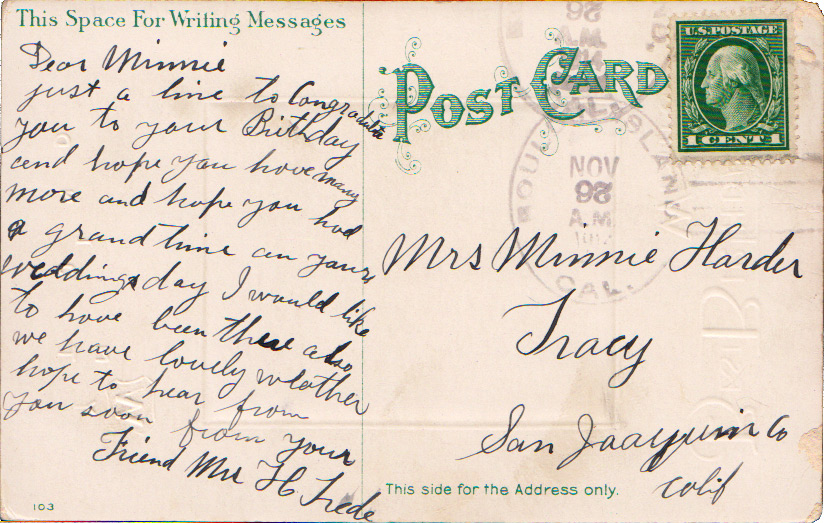 This Space For Writing Messages
Dear Minnie
just a line to Congradulta
you to your Birthday
and hope you have many
more and hope you had
a grand time on your
weddings day I would like
to have been there also
we have lovely weather
hope to hear from
you soon from your
Friend Mrs H Trede
103
POST CARD
U.S. POSTAGE
1 CENT 1
NOV
26
A.M.
CAL.
Mrs Minnie Harder
Tracy
San Joaquin Co
Calif
This side for the Address only.